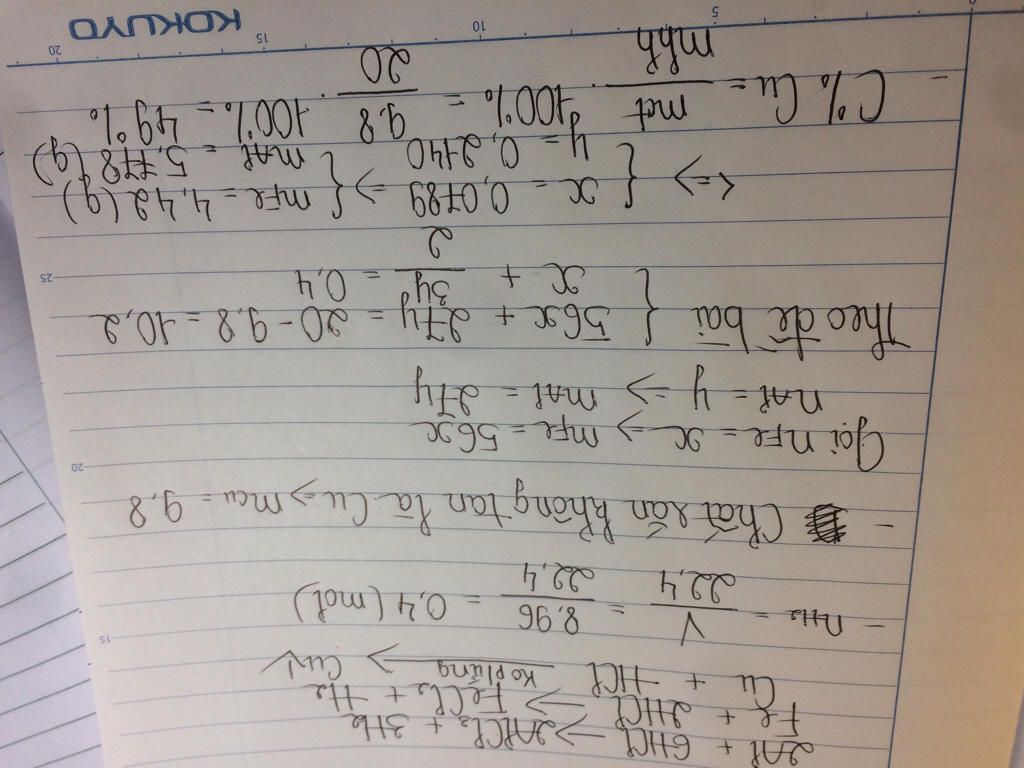 2Al + 6HCl → 2AlCl₃ + 3H₂
Fe + 2HCl → FeCl₂ + H₂
Cu + HCl ko pứng → Cu↓
- nH₂ = V/22,4 = 8,96/22,4 = 0,4 (mol)
- Chất rắn không tan là Cu => mcu = 9,8
Gọi nFe = x => mFe = 56x
nAl = y => mAl = 27y
Theo đề bài { 56x + 27y = 20 - 9,8 = 10,2
x + 3y/2 = 0,4
<=> { x = 0,0789 => { mFe = 4,42 (g)
y = 0,2140 mAl = 5,778 (g)
- C% Cu = mct/mhh . 100% = 9,8/20 . 100% = 49%
KOKUYO
15
20
25
5
10
15
20